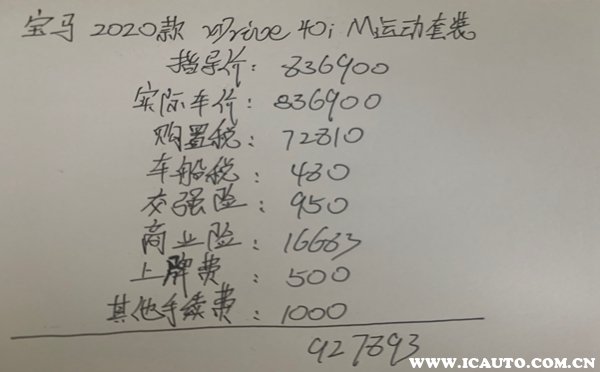 宝马 2020款 xDrive 40i M运动套装
指导价: 836900
实际车价: 836900
购置税: 72810
车船税: 480
交强险: 950
商业险: 16663
上牌费: 500
其他手续费: 1000
927893
WWW.ICAUTO.COM.CN